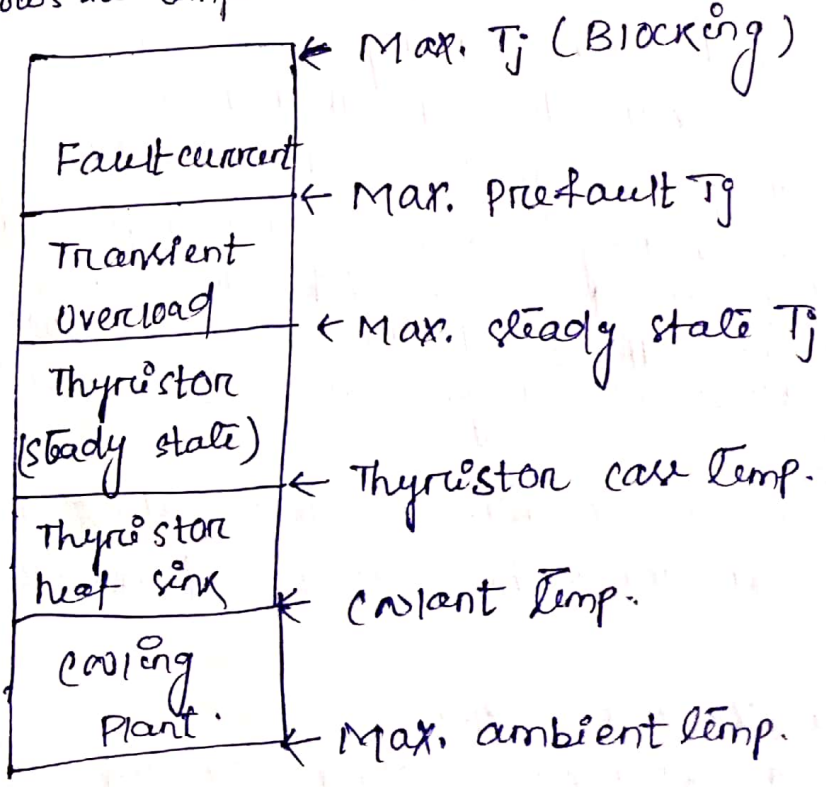 Max. Tj (Blocking)
Fault current
Max. prefault Tj
Transient
overload
Max. steady state Tj
Thyristor
(steady state)
Thyristor case temp.
Thyristor
heat sink
Coolant temp.
Cooling
Plant.
Max. ambient temp.